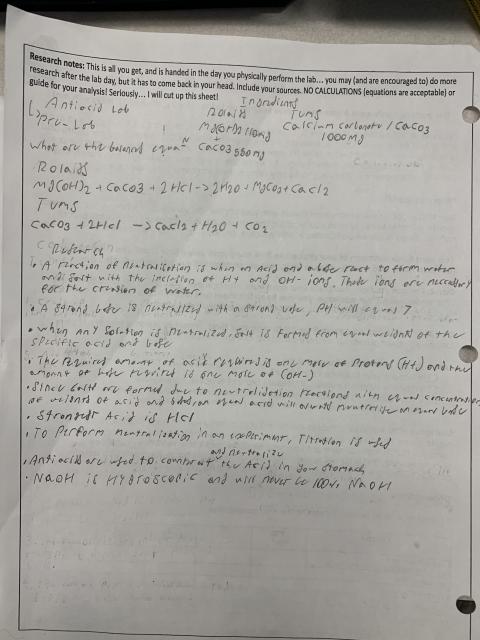 Research notes: This is all you get, and is handed in the day you physically perform the lab... you may (and are encouraged to) do more
research after the lab day, but it has to come back in your head. Include your sources. NO CALCULATIONS (equations are acceptable) or
guide for your analysis! Seriously... I will cut up this sheet!
Antiacid Lob
Ingredients
Pre-Lob
Rolaids
Tums
Mg(OH)2 110mg
+
CaCO3 550mg
Calcium carbonate / CaCO3
1000MG
What are the balanced equaN
Rolaids
Mg(OH)2 + CaCO3 + 2HCl -> 2H2O + MgCO3 + CaCl2
Tums
CaCO3 + 2HCl -> CaCl2 + H2O + CO2
Research
. A reaction of neutralization is when an Acid and a base react to form water
and salt with the inclusion of H+ and OH- ions. Those ions are neccessary
for the creation of water.
. A strong base is neutralized with a strong base, PH will equal 7
. When ANY Solution is neutralized, salt is formed from equal weights of the
specific acid and base
. The required amount of acid required is one mole of Protons (H+) and the
amount of base required is one mole of (OH-)
. Since salts are formed due to neutralization reactions with equal concentration
of weights of acid and base, an equal acid will always neutralize an equal base
. Strongest Acid is HCl
. To Perform neutralization in an experiment, Titration is used
and neutralize
. Antiacids are used to counteract the Acid in your stomach
. NaOH is HYgroscopic and will never be 100% NaOH